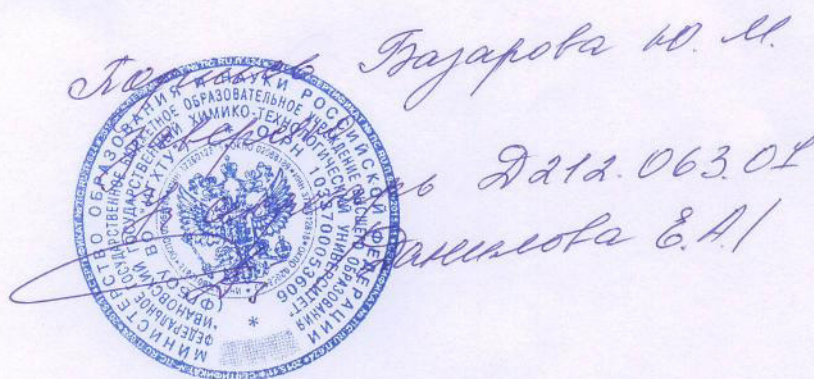 Подпись Базарова Ю. М.
заверяю
секретарь Д212.063.01
Данилова Е.А./
МИНИСТЕРСТВО ОБРАЗОВАНИЯ И НАУКИ РОССИЙСКОЙ ФЕДЕРАЦИИ
ФЕДЕРАЛЬНОЕ ГОСУДАРСТВЕННОЕ БЮДЖЕТНОЕ ОБРАЗОВАТЕЛЬНОЕ УЧРЕЖДЕНИЕ ВЫСШЕГО ОБРАЗОВАНИЯ
"ИВАНОВСКИЙ ГОСУДАРСТВЕННЫЙ ХИМИКО-ТЕХНОЛОГИЧЕСКИЙ УНИВЕРСИТЕТ"
(ФГБОУ ВО "ИГХТУ") * ОГРН 1033700053606